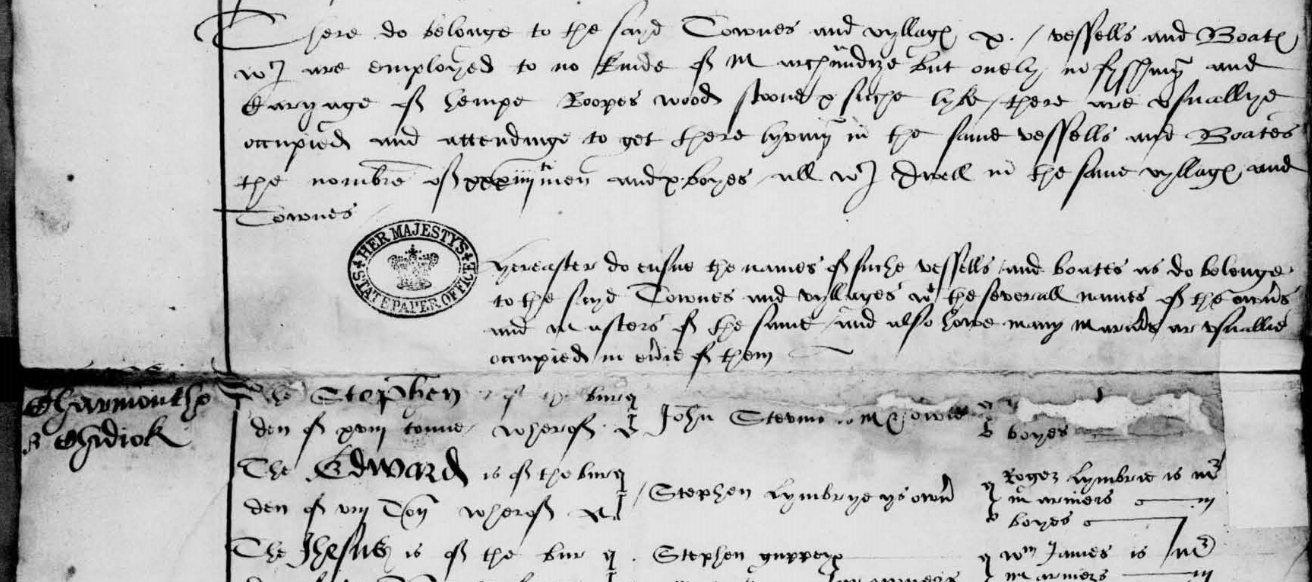 There do belonge to the sayd Townes and vyllag x. / vessells and Boat
wch are employed to no kinde of Marchundize but onely in fysshing and
Caryage of hempe Roopes wood stoone & suche lyke / there are vsuallye
occupied and attendinge to get there lyving in the same vessells and Boates
the nombre of men and x boyes all wch dwell in the same vyllag and
Townes
HER MAJESTY'S STATE PAPER OFFICE
hereafter do ensue the names of suche vessells and boates as do belonge
to the sayd Townes and vyllages wt the severall names of the own̄s
and Masters of the same / and also howe many Marin̄s ar vsuallie
occupied in ev̄ie of them
Charmouthe
& Chidiok
The Stephen is of the bur
den of xviij tonne wherof John owner
boyes
The Edward is of the bur
den of viij Ton wherof Stephen Lymbrye ys own̄
Roger Lymbrie is mr
mariners iij
boyes
The Jhesus is of the bur Stephen wm James is mr
mariners iij